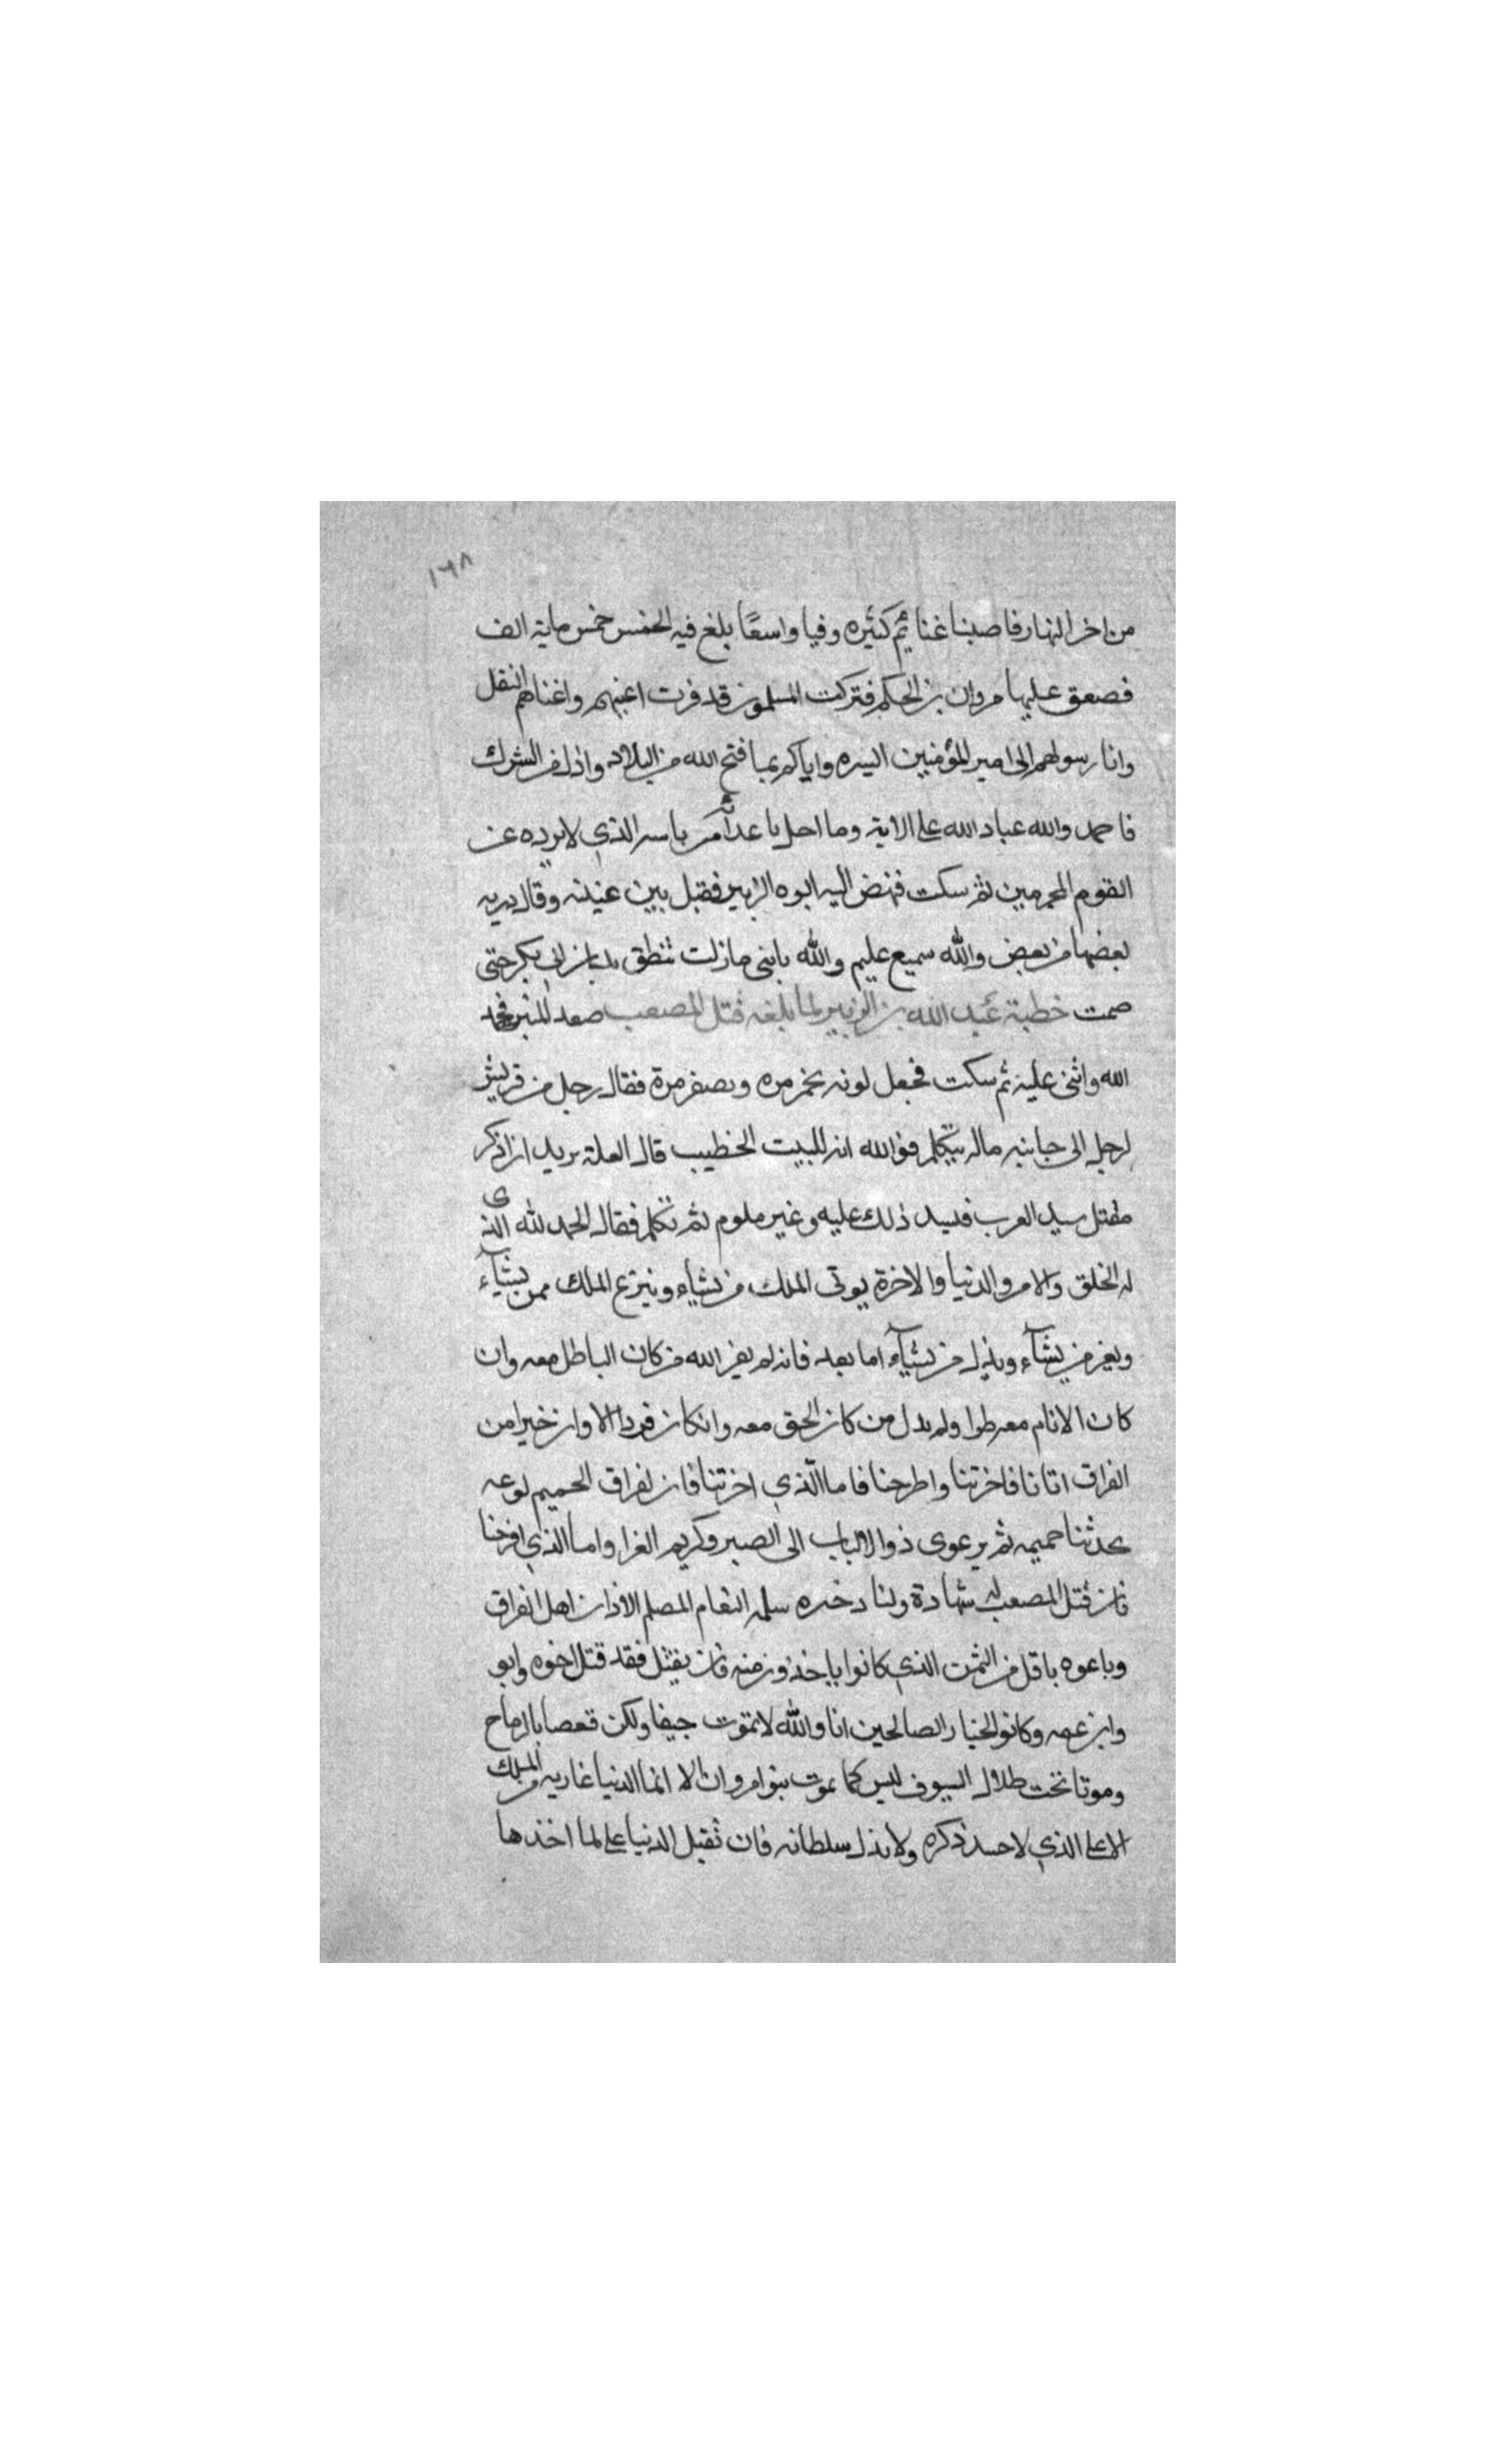 ١٦٨
من اخر النهار فاصبنا غنائم كثيره وفيا واسعًا بلغ فيه الخمس خمس ماية الف
فصعق عليها مروان بن الحكم فتركت المسلمون قد قرت اعينهم واغناهم النفل
وانا رسولهم الى امير المؤمنين اليسره واياكم بما فتح الله من البلاد واذل من الشرك
فاحمدوالله عباد الله على الايه وما احل باعدائه من باسه الذي لا يرده عن
القوم المجرمين ثم سكت فنهض اليه ابوه الزبير فقبل بين عينيه وقال ذريه
بعضها من بعض والله سميع عليم والله يابنى ما زلت تنطق بلسان ابى بكر حتى
صمت خطبة عبد الله بن الزبير لما بلغه قتل المصعب صعد المنبر فحمد
الله واثنى عليه ثم سكت فجعل لونه يحمر مره ويصفر مرة فقال رجل من قريش
لرجل الى جانبه ماله يتكلم فوالله انه للبيت الخطيب قال لعله يريد ان اذكر
مقتل سيد العرب ذلك عليه وغير ملوم ثم تكلم فقال الحمد لله الذى
له الخلق والامر والدنيا والاخرة يوتى الملك من يشاء وينزع الملك ممن يشاء
ويعز من يشاء ويذل من يشاء اما بعد فانه لم يعز الله من كان الباطل معه وان
كان الانام معه طرا ولم يذل من كان الحق معه وان كان فردا الا وان خيرا من
العراق اتانا فاخرتنا واطرحنا فاما الذي اخزتنا فان لفراق الحميم لوعه
يحدثنا حميمه ثم يرعوى ذوالالباب الى الصبر وكريم العزا واما الذي افرحنا
فان قتل المصعب له شهادة ولنا دخيره سلمه النعام المصلم الاذان اهل العراق
وباعوه باقل من الثمن الذي كانوا ياخذون منه فان يقتل فقد قتل اخوه وابوه
وابن عمه وكانوا الخيار الصالحين انا والله لا نموت جيفا ولكن قعصا بالرماح
وموتا تحت ظلال السيوف ليس كما يموت بنوا مروان الا انما الدنيا عاريه من الملك
الاعلى الذي لا ذكره ولا يذل سلطانه فان تقبل الدنيا على لما اخذها